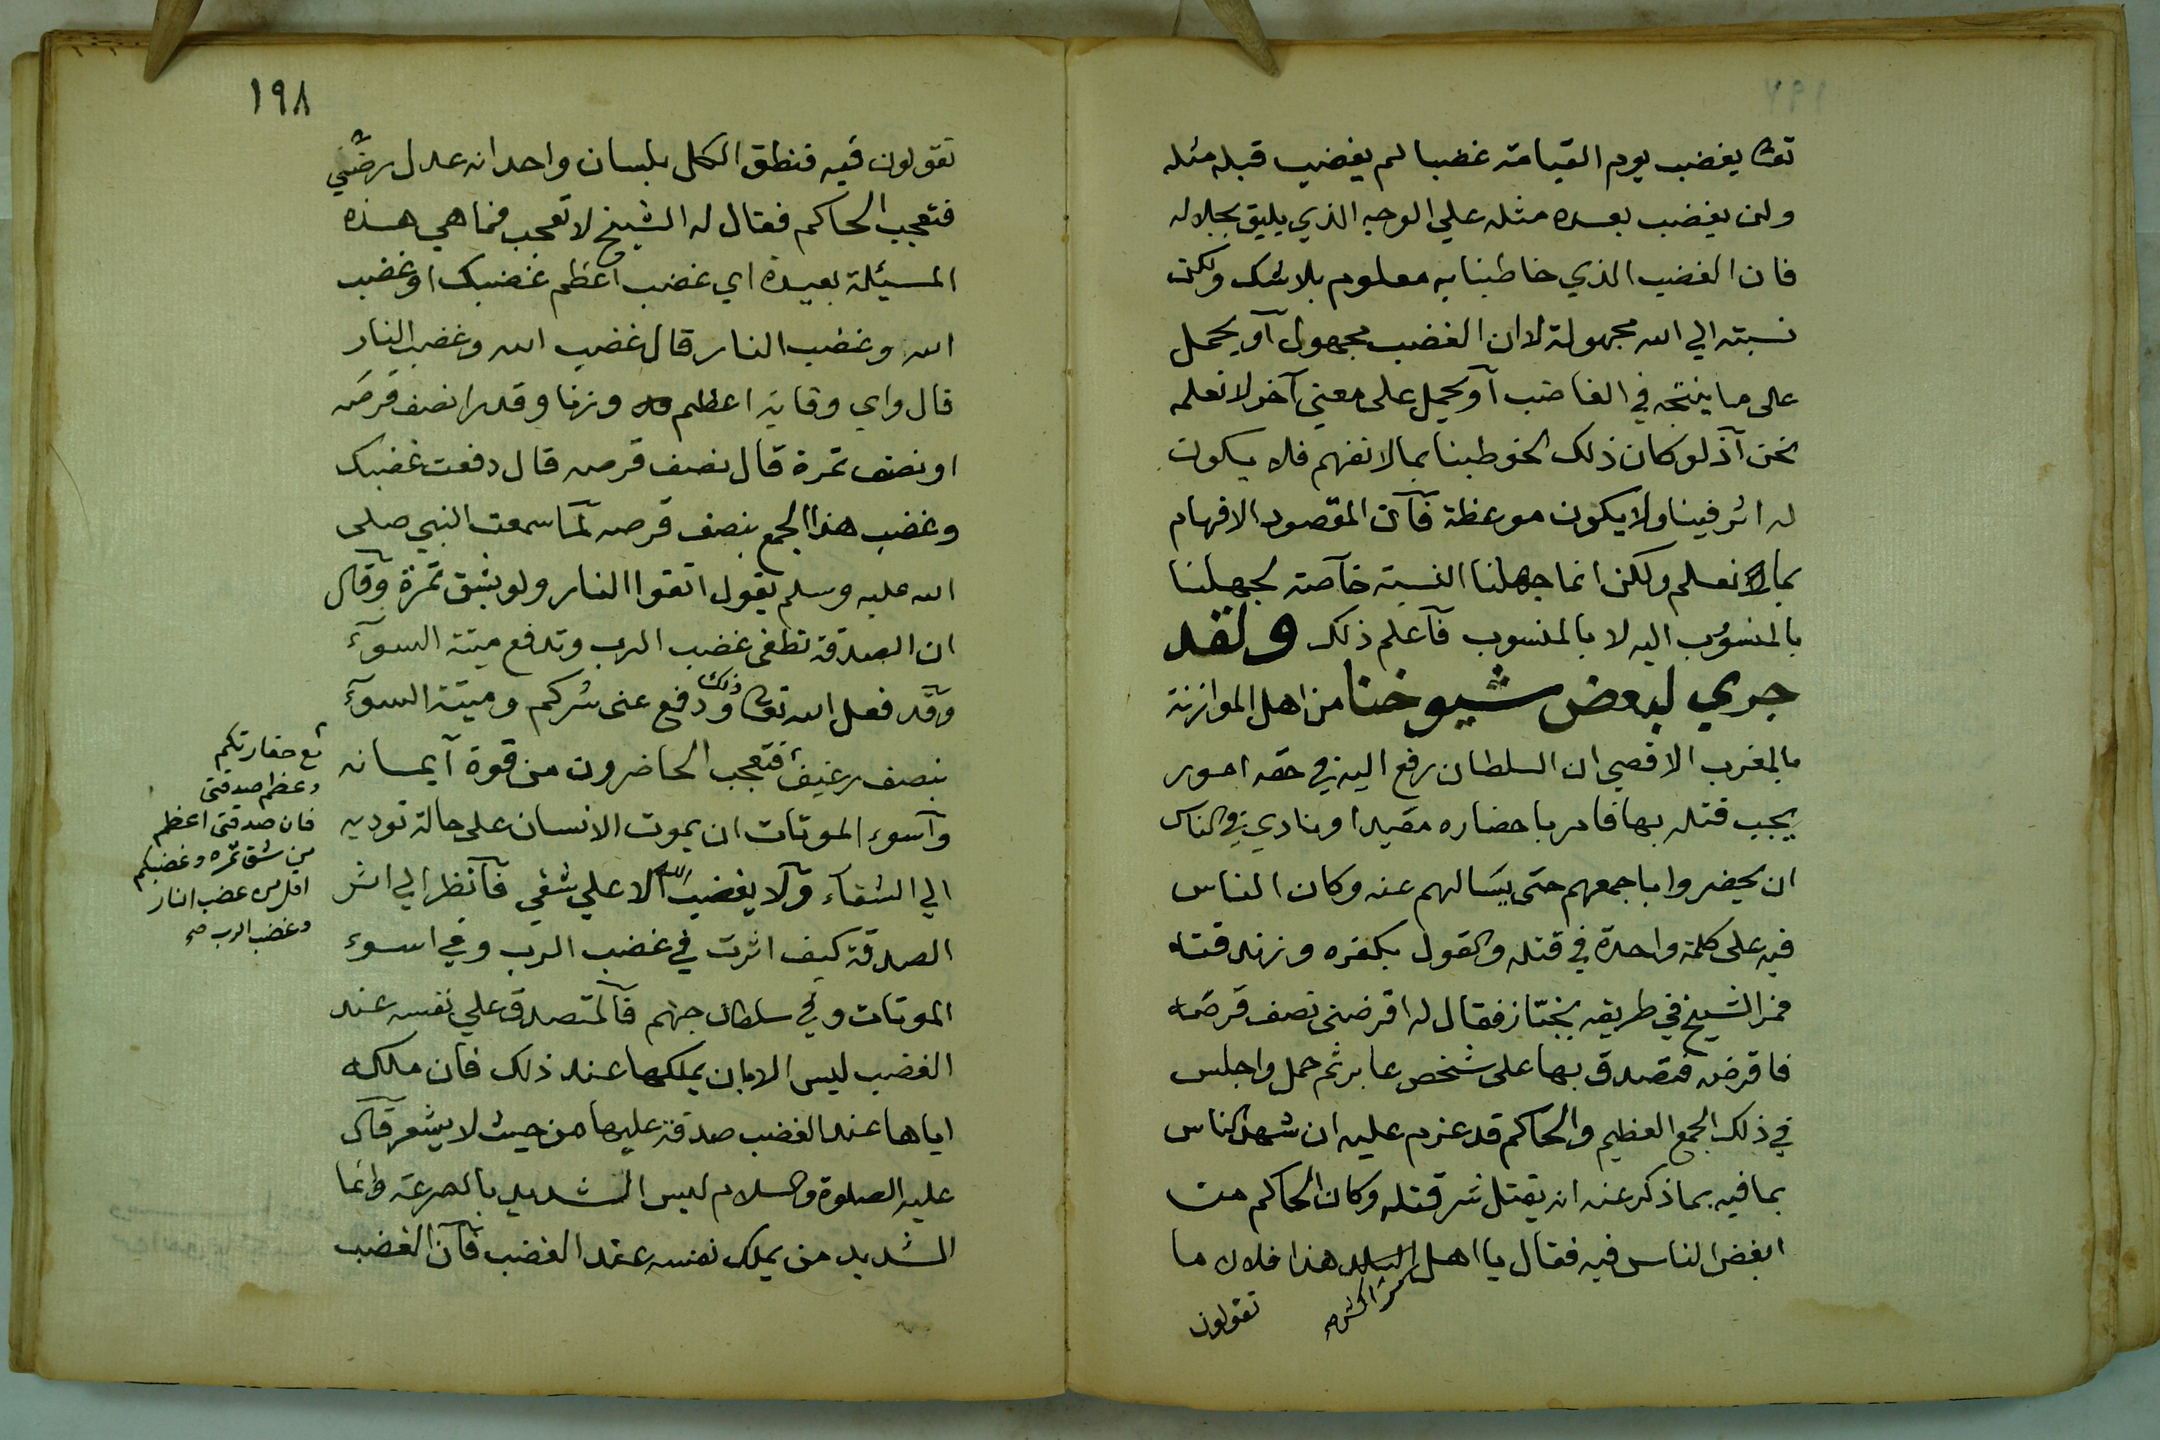 تعا يغضب يوم القيامة غضبا لم يغضب قبله مثله
ولن يغضب بعده مثله علي الوجه الذي يليق بجلاله
فان الغضب الذي خاطبنا به معلوم بلا شك ولكن
نسبته الي الله مجهولة لا ان الغضب مجهول آو يحمل
على ما ينتجه في الغاضب آو يحمل على معني آخر لا نعلمه
نحن آذ لو كان ذلك لخوطبنا بما لا نفهم فلا يكون
له اثر فينا ولا يكون موعظة فآن المقصود الافهام
بما لا نعلم ولكن انما جهلنا النسبة خآصة لجهلنا
بالمنسوب اليه لا بالمنسوب فآعلم ذلك ولقد
جري لبعض شيوخنا من اهل الموازنة
بالمغرب الاقصي ان السلطان رفع اليه في حقه امور
يجب قتله بها فامر باحضاره مقيدا ونادي في الناس
ان يحضروا باجمعهم حتى يسالهم عنه وكان الناس
فيه على كلمة واحدة في قتله والقول بكفره وزندقته
فمر الشيخ في طريقه بخبّاز فقال له اقرضنى نصف قرصه
فاقرضه فتصدق بها على شخص عابر ثم حمل واجلس
في ذلك الجمع العظيم والحاكم قد عزم عليه ان شهد الناس
بما فيه بما ذكر عنه انه يقتل شر قتله وكان الحاكم من
ابغض الناس فيه فقال يا اهل البلد هذا فلان ما
مراكش
تقولون
١٩٨
تقولون فيه فنطق الكل بلسان واحد انه عدل رضّي
فتعجب الحاكم فقال له الشيخ لا تعجب فما هي هذه
المسيئلة بعيدة اي غضب اعظم غضبك او غضب
الله وغضب النار قال غضب الله وغضب النار
قال واي وقاية اعظم وزنا وقدرا نصف قرصه
او نصف تمرة قال نصف قرصه قال دفعت غضبك
وغضب هذا الجمع بنصف قرصه لمّا سمعت النبي صلى
الله عليه وسلم يقول اتقوا النار ولو بشق تمرة وقال
ان الصدقة تطفي غضب الرب وتدفع ميتة السوٓء
وقد فعل الله تعا ذلك ودفع عنى شركم وميتة السوٓء
بنصف رغيف فتعجب الحاضرون من قوة آيمانه
وآسوء الموتات ان يموت الانسان على حالة توديه
الي الشقاء ولا يغضب الله الا علي شقي فآنظر الي اثر
الصدقة كيف اثرت في غضب الرب وفي اسوء
الموتات وفي سلطان جهنم فآلمتصدق علي نفسه عند
الغضب ليس الا بان يملكها عند ذلك فان ملكه
اياها عند الغضب صدقة عليها من حيث لا يشعر قال
عليه الصلوة والسلام ليس الشديد بالصرعة وانما
الشديد من يملك نفسه عند الغضب فآن الغضب
مع حقارتكم
وعظم صدقتى
فان صدقتى اعظم
من شق تمره وغضبكم
اقل من غضب النار
وغضب الرب صح